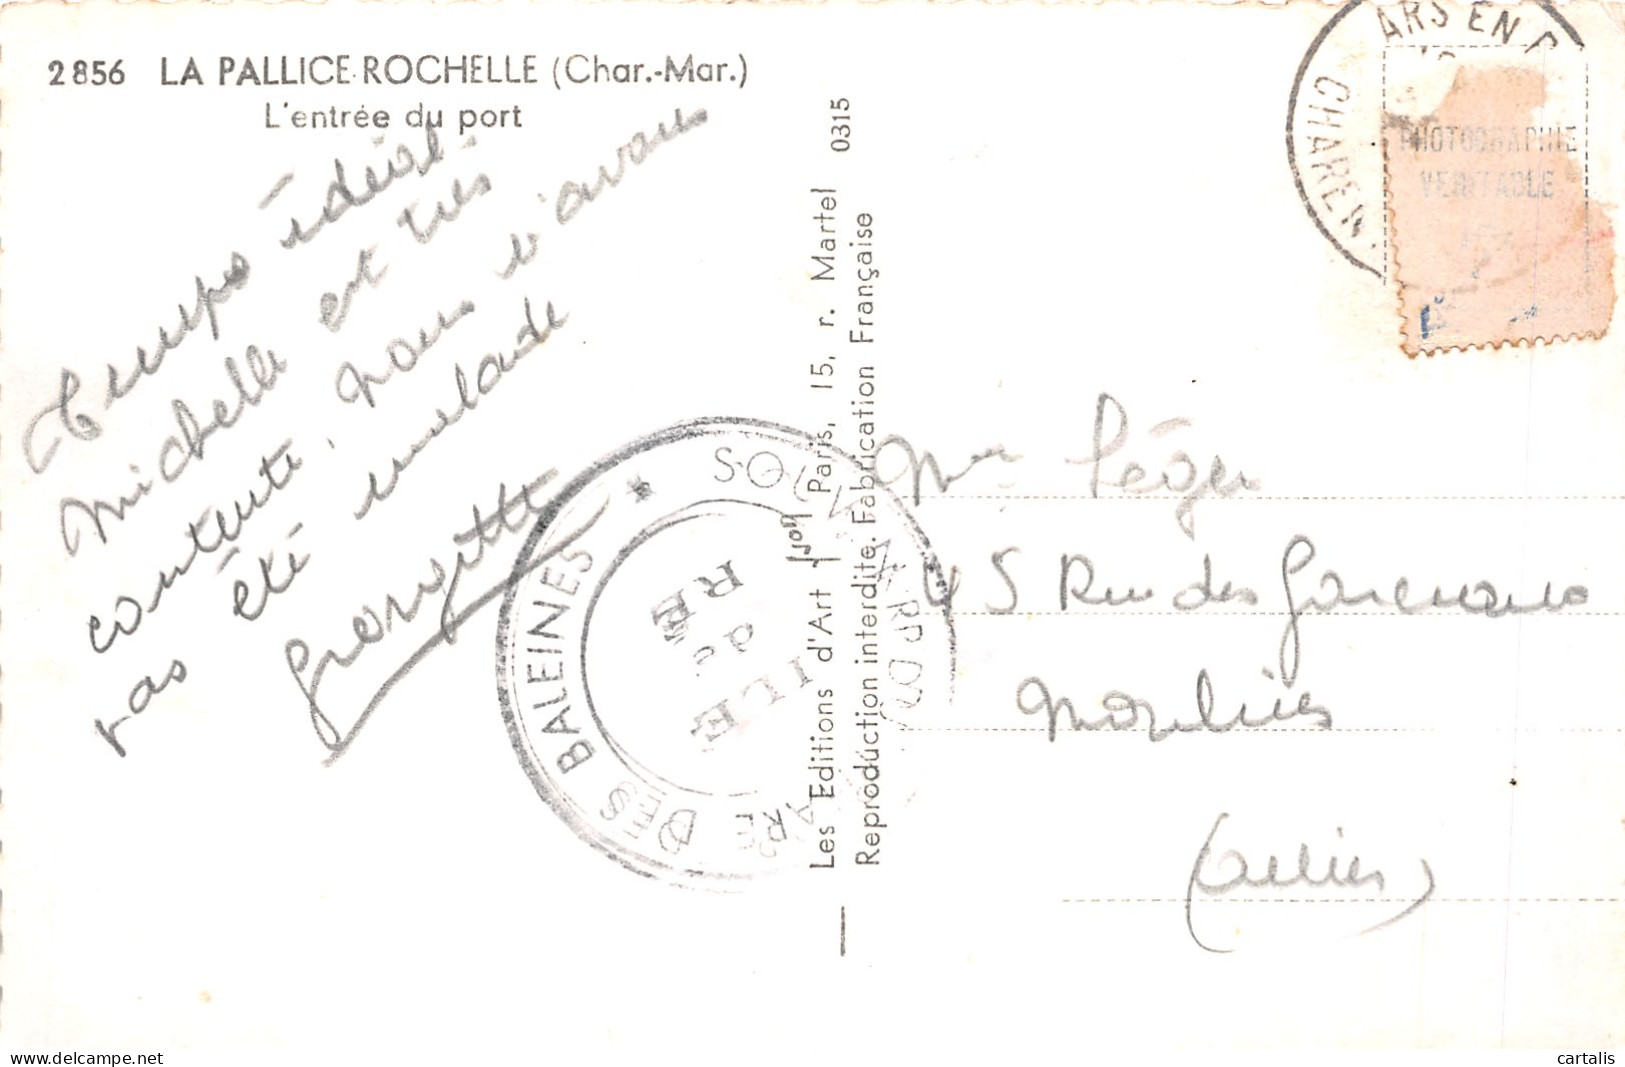 2856 LA PALLICE-ROCHELLE (Char.-Mar.)
L'entrée du port
Temps idéal.
Michelle est très
contente, nous n'avons
pas été malade
Georgette
Les Editions d'Art "Yvon" Paris, 15, r. Martel 0315
Reproduction interdite. Fabrication Française
ARS EN
CHAREN
PHOTOGRAPHIE
VERITABLE
SOUVENIR DU
PHARE DES BALEINES
ILE
de
RE
Mme Léger
45 Rue des Garceaux
Moulins
(Allier)
cartalis